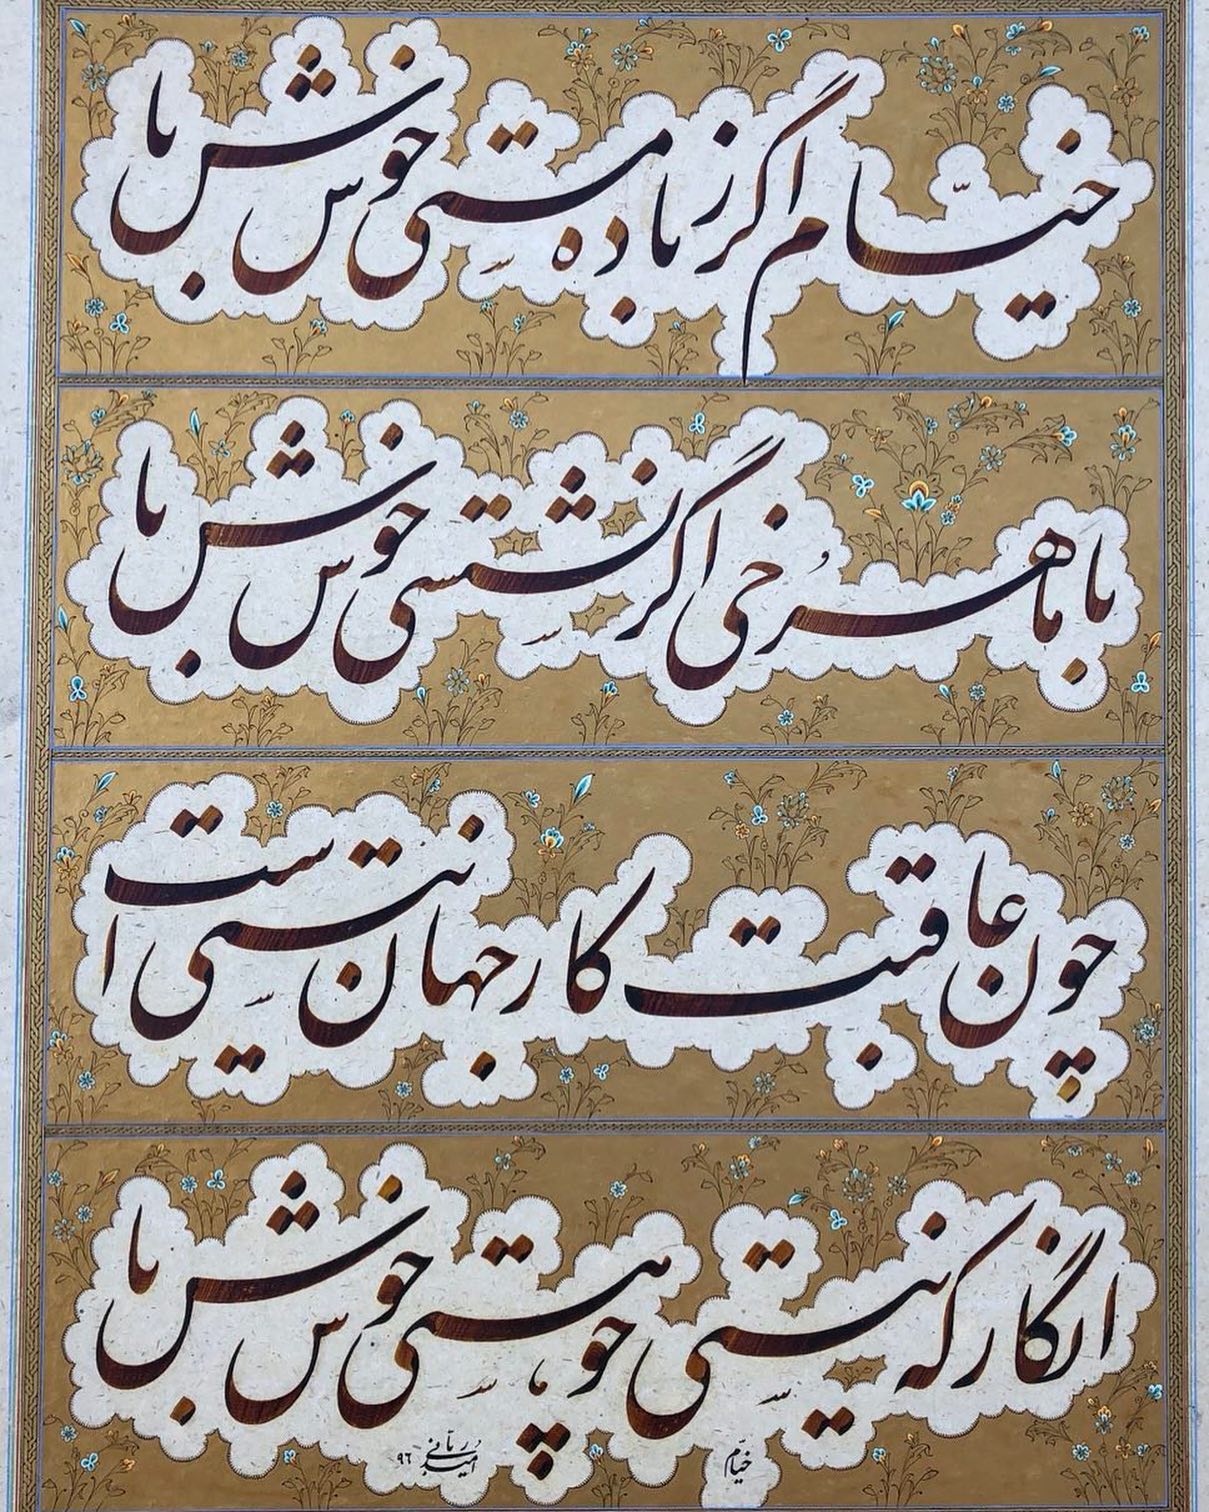 خیّام اگر ز باده مستی خوش باش
با ماهرُخی اگر نشستی خوش باش
چون عاقبت کار جهان نیستی است
انگار که نیستی چو هستی خوش باش
خیّام
امید ربانی ۹۶